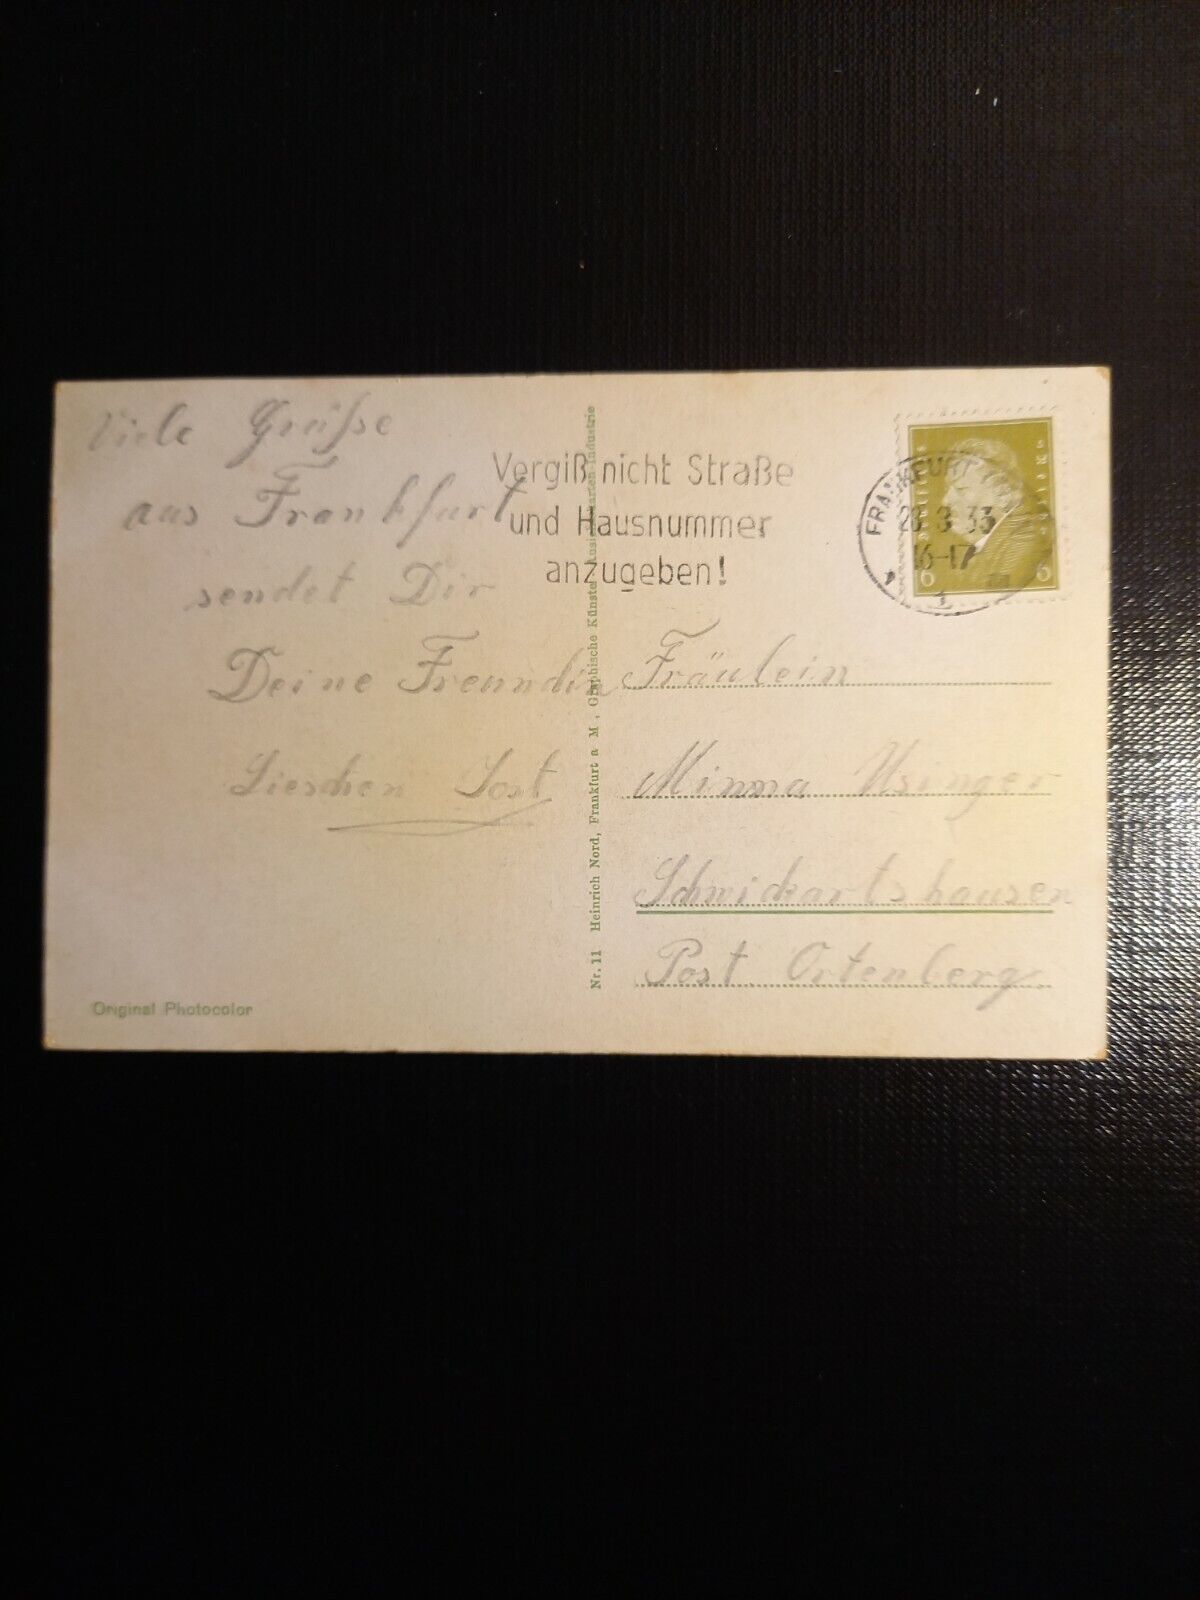 Viele Grüße
aus Frankfurt
sendet Dir
Deine Freundin
Lieschen Jost
Original Photocolor
Nr. 11 Heinrich Nord, Frankfurt a M, Graphische Künste Ansichtskarten-Industrie
Vergiß nicht Straße
und Hausnummer
anzugeben!
FRANKFURT
3 33
16-17
6 6
Fräulein
Minna Usinger
Schwickartshausen
Post Ortenberg.